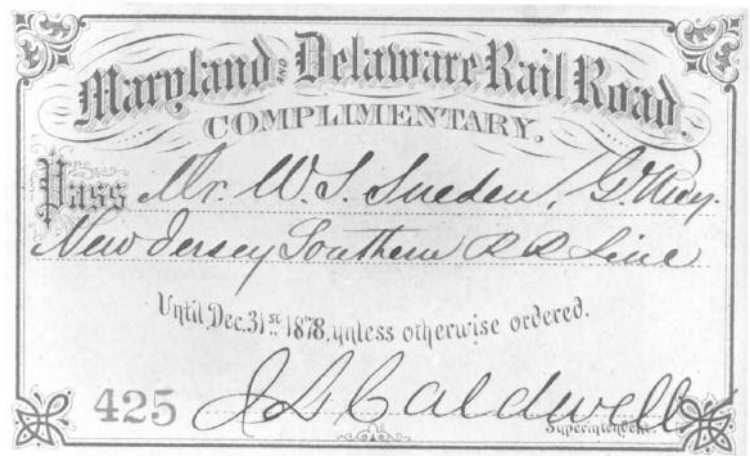 Maryland AND Delaware Rail Road.
COMPLIMENTARY.
Pass Mr. W. S. Sneden,
New Jersey Southern R R Line
Until Dec. 31st 1878, unless otherwise ordered.
425 J L Caldwell
Superintendent.